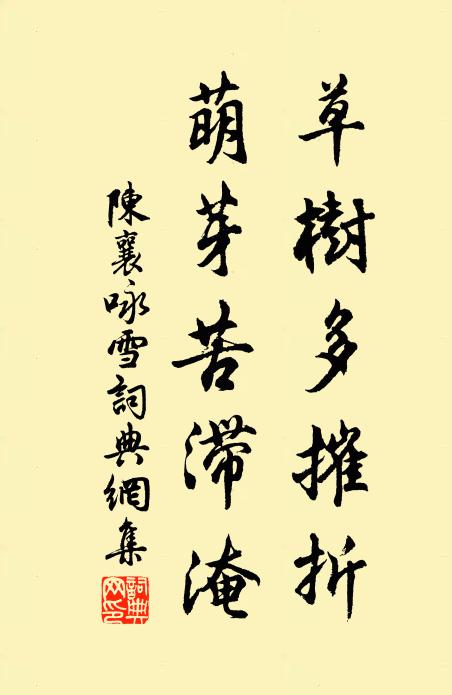 草樹多摧折
萌芽苦滯淹
陳襄咏雪詞典網集
詞典网印